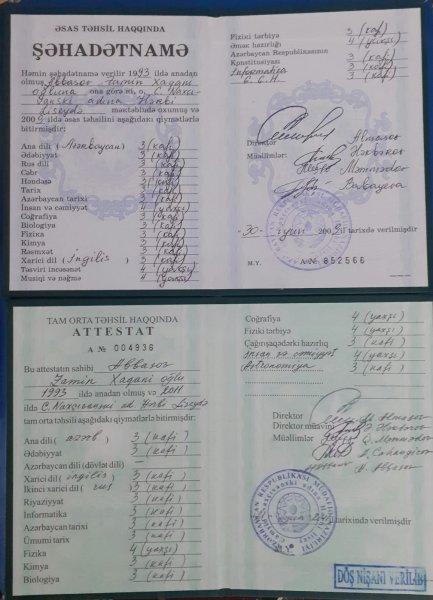 ƏSAS TƏHSİL HAQQINDA
ŞƏHADƏTNAMƏ
Həmin şəhadətnamə verilir 1993 ildə anadan
olmuş Abbasov Zamin Xaqani
oğluna ona görə ki, o, C. Naxçı-
vanski adına Hərbi
Liseydə məktəbində oxumuş və
200 ildə əsas təhsilin aşağıdakı qiymətlərlə
bitirmişdir:
Ana dili (Azərbaycan) 3 (kafi)
Ədəbiyyat 3 (kafi)
Rus dili 3 (kafi)
Cəbr 3 (kafi)
Həndəsə 3 (kafi)
Tarix 3 (kafi)
Azərbaycan tarixi 3 (kafi)
İnsan və cəmiyyət 4 (yaxşı)
Coğrafiya 3 (kafi)
Biologiya 3 (kafi)
Fizika 3 (kafi)
Kimya 3 (kafi)
Rəsmxət 3 (kafi)
Xarici dil (İngilis) 3 (kafi)
Təsviri incəsənət 4 (yaxşı)
Musiqi və nəğmə 4 (yaxşı)
Fiziki tərbiyə 3 (kafi)
Əmək hazırlığı 4 (yaxşı)
Azərbaycan Respublikasının
Konstitusiyası 3 (kafi)
İnformatika 3 (kafi)
Direktor
Müəllimlər:
30 iyun 200 il tarixdə verilmişdir
M.Y. A № 852566
TAM ORTA TƏHSİL HAQQINDA
ATTESTAT
A № 004936
Bu attestatın sahibi Abbasov
Zamin Xaqani oğlu
1993 ildə anadan olmuş və
ildə C. Naxçıvanski ad. Hərbi Liseydə
tam orta təhsili aşağıdakı qiymətlərlə bitirmişdir:
Ana dili (azərb) 3 (kafi)
Ədəbiyyat 3 (kafi)
Azərbaycan dili (dövlət dili) —
Xarici dil (ingilis) 3 (kafi)
İkinci xarici dil (rus) 3 (kafi)
Riyaziyyat 3 (kafi)
İnformatika 3 (kafi)
Azərbaycan tarixi 3 (kafi)
Ümumi tarix 3 (kafi)
Fizika 4 (yaxşı)
Kimya 3 (kafi)
Biologiya 3 (kafi)
Coğrafiya 4 (yaxşı)
Fiziki tərbiyə 4 (yaxşı)
Çağırışaqədərki hazırlıq 3 (kafi)
İnsan və cəmiyyət 4 (yaxşı)
Astronomiya 3 (kafi)
Direktor
Direktor müavini
Müəllimlər
tarixində verilmişdir
DÖŞ NİŞANI VERİLİB